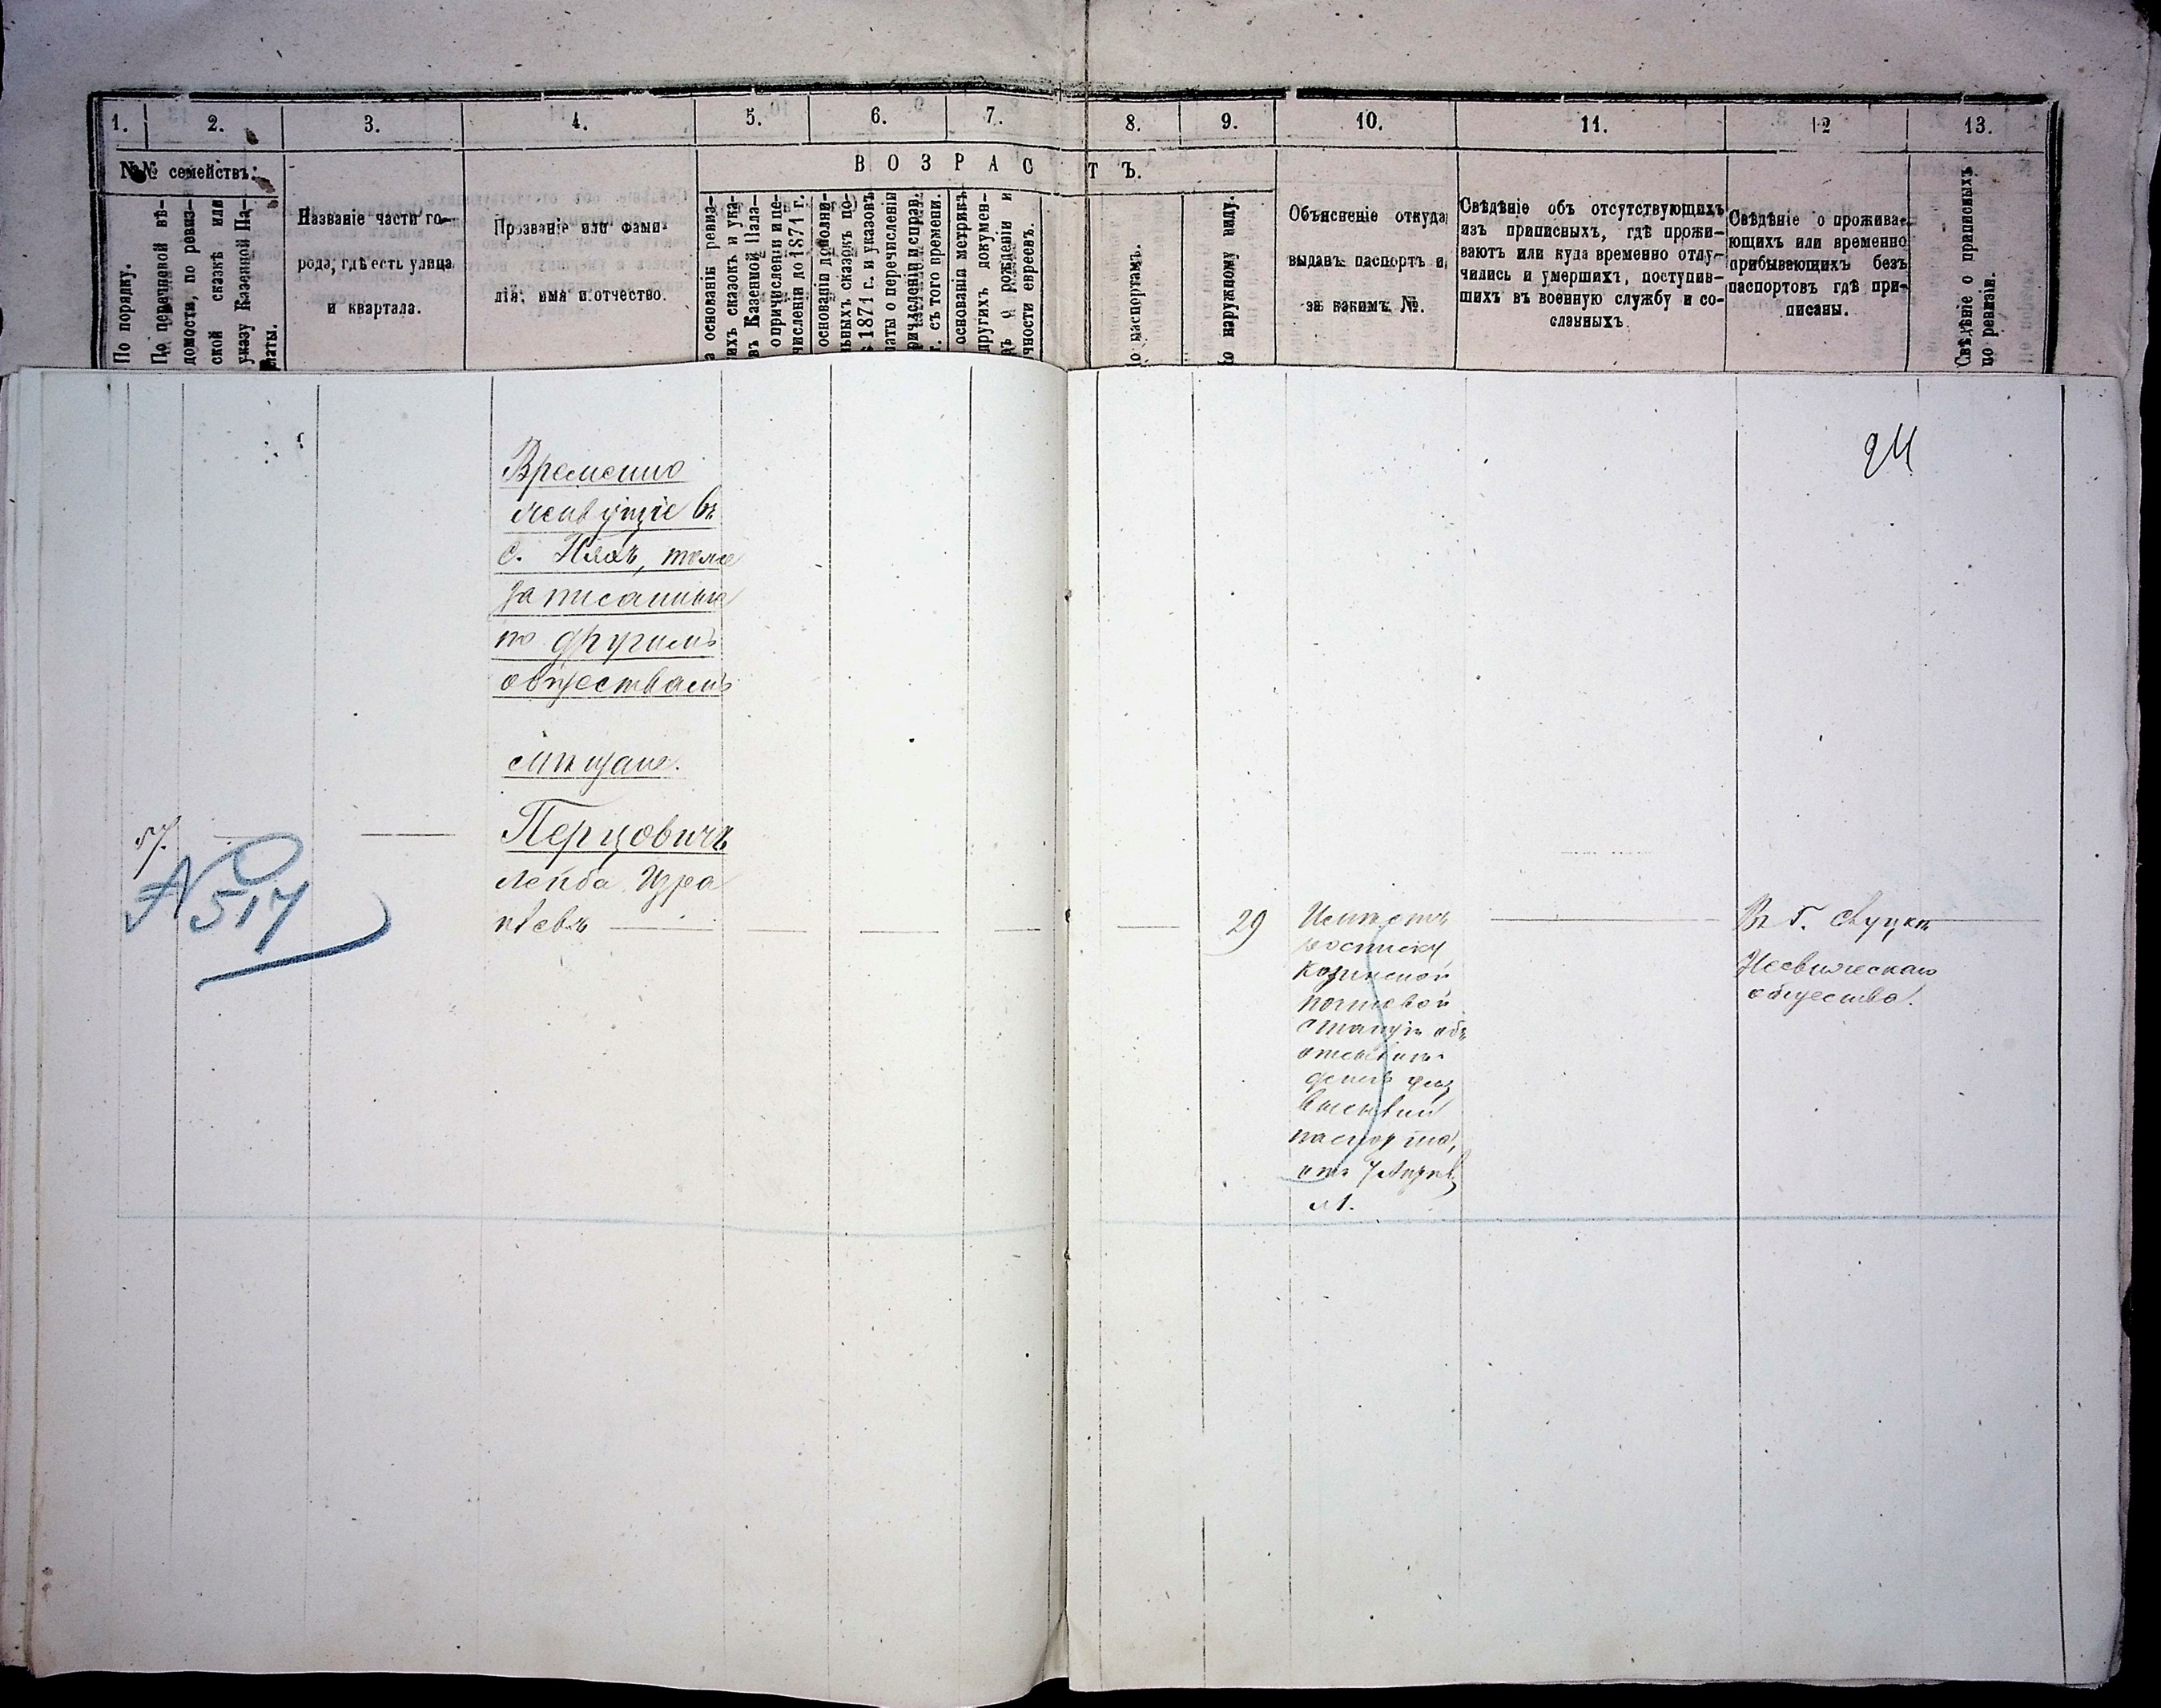 1. 2. 3. 4. 5. 6. 7. 8. 9. 10. 11. 12 13.
№№ семействъ:
В О З Р А С Т Ъ.
По порядку.
По перечневой вѣ-
домости, по ревиз-
ской сказкѣ или
указу Казенной Па-
латы.
Названіе части го-
рода, гдѣ есть улица
и квартала.
Прозваніе или фами-
лія; имя и отчество.
основаніи ревиз-
ихъ сказокъ и ука-
въ Казенной Пала-
о причисленіи и пе-
численіи до 1871 г.
основаніи дополни-
льныхъ сказокъ по-
1871 г. и указовъ
латы о перечисленіи
ричисленіи и справ.
г. съ того времени.
основаніи метрикъ
другихъ докумен-
ъ о рожденіи и
чности евреевъ.
о паспортамъ.
о наружному виду.
Объясненіе откуда
выданъ паспортъ и
за какимъ №.
Свѣдѣніе объ отсутствующихъ
изъ приписныхъ, гдѣ прожи-
ваютъ или куда временно отлу-
чились и умершихъ, поступив-
шихъ въ военную службу и со-
сланныхъ.
Свѣдѣніе о прожива-
ющихъ или временно
прибывающихъ безъ
паспортовъ гдѣ при-
писаны.
Свѣдѣніе о приписныхъ
по ревизіи.
24
Временно
живущіе въ
с.
записанные
по другимъ
обществамъ
Мѣщане.
57.
№ 517
Перцовичъ
Лейба Изра
илевъ
29
Имѣетъ
росписку
почтовой
станціи объ
паспорта,
отъ 7
№ 1.
Въ г. Слуцкѣ
Несвижскаго
общества.